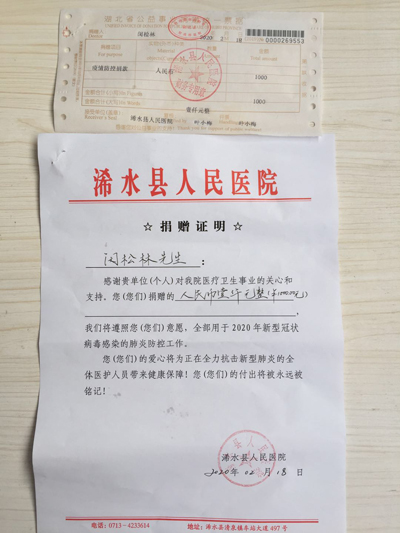 闵松林
0000269553
疫情防控捐款
人民币
1000
1000
壹仟元整
浠水县人民医院
浠水县人民医院
☆ 捐赠证明 ☆
闵松林先生：
感谢贵单位(个人)对我院医疗卫生事业的关心和
支持。您(您们)捐赠的 人民币壹仟元整(￥1000.00元)
我们将遵照您(您们)意愿，全部用于2020年新型冠状
病毒感染的肺炎防控工作。
您(您们)的爱心将为正在全力抗击新型肺炎的全
体医护人员带来健康保障！您(您们)的付出将被永远被
铭记！
浠水县人民医院
2020年02月18日
电话：0713-4233614
地址：浠水县清泉镇车站大道497号